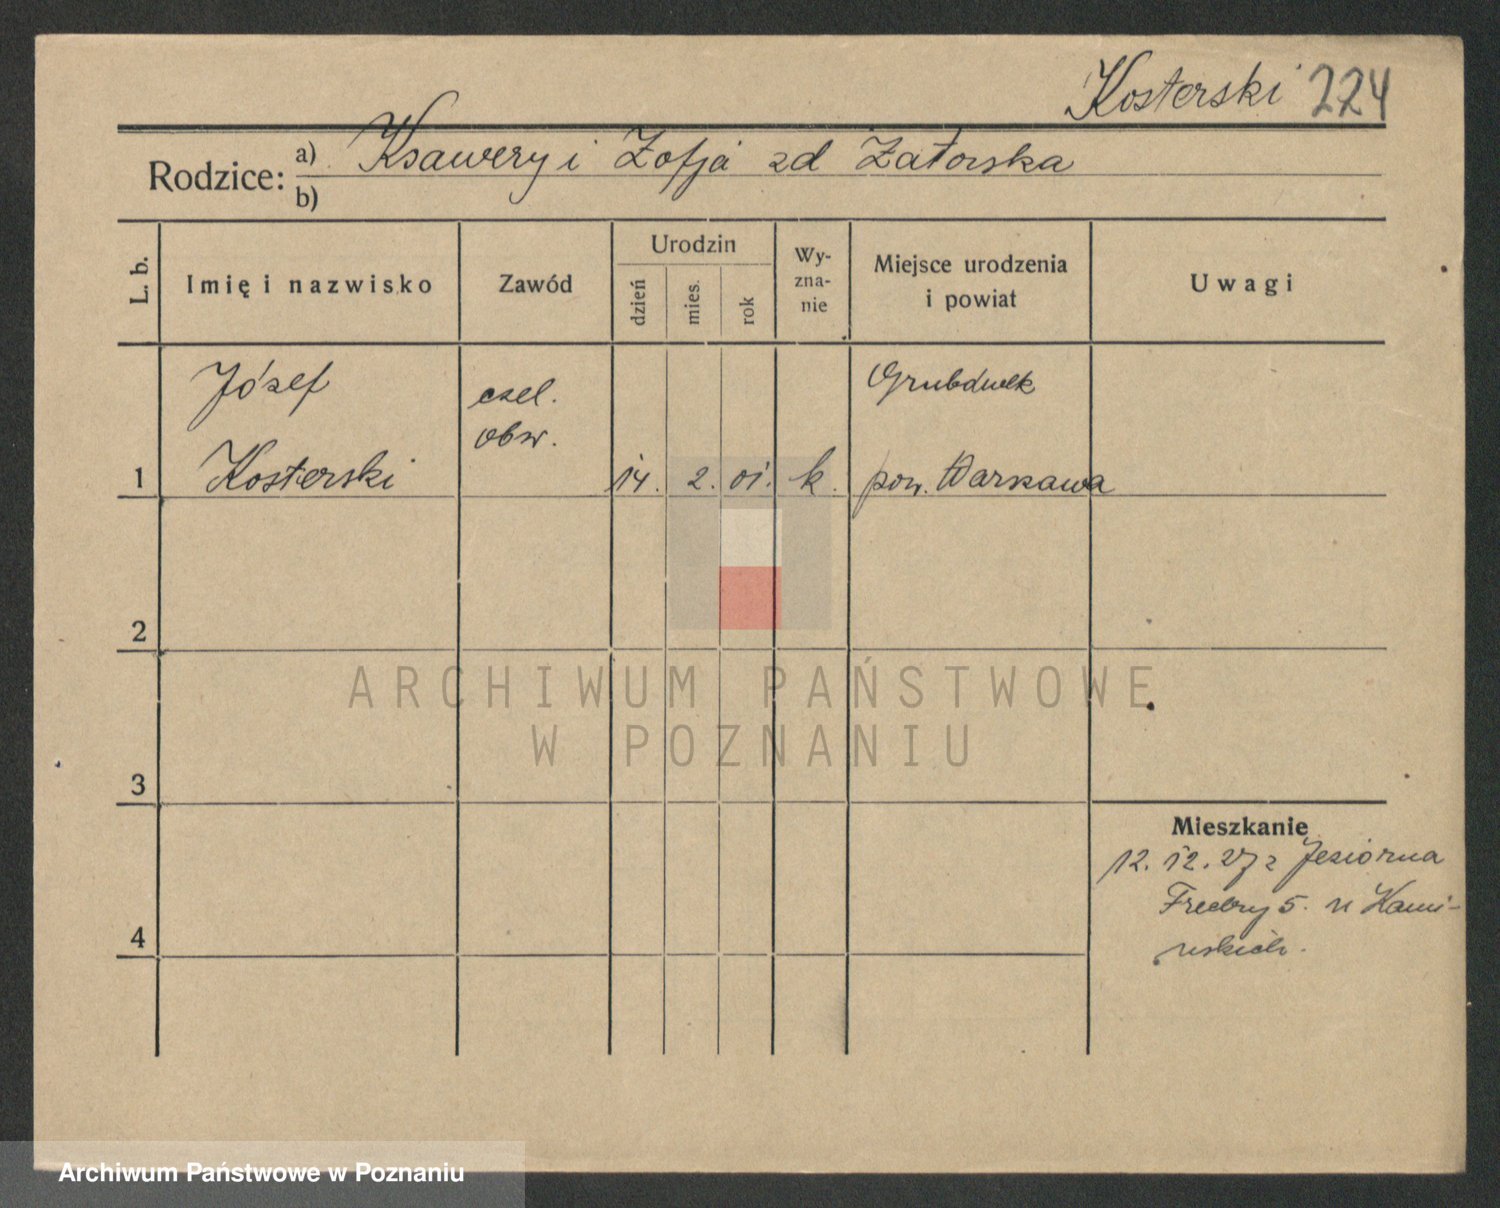 Kosterski 224
Rodzice: a) Ksawery i Zofja zd Zatorska
b)
L. b.
Imię i nazwisko
Zawód
Urodzin
dzień
mies.
rok
Wy-
zna-
nie
Miejsce urodzenia
i powiat
Uwagi
Józef
Kosterski
czel.
obw.
1
14. 2. 01. k.
pow. Warszawa
2
3
4
Mieszkanie
12.12.27 z Jeziorna
Fredry 5. u Kami-
nskich.
ARCHIWUM PAŃSTWOWE
W POZNANIU
Archiwum Państwowe w Poznaniu